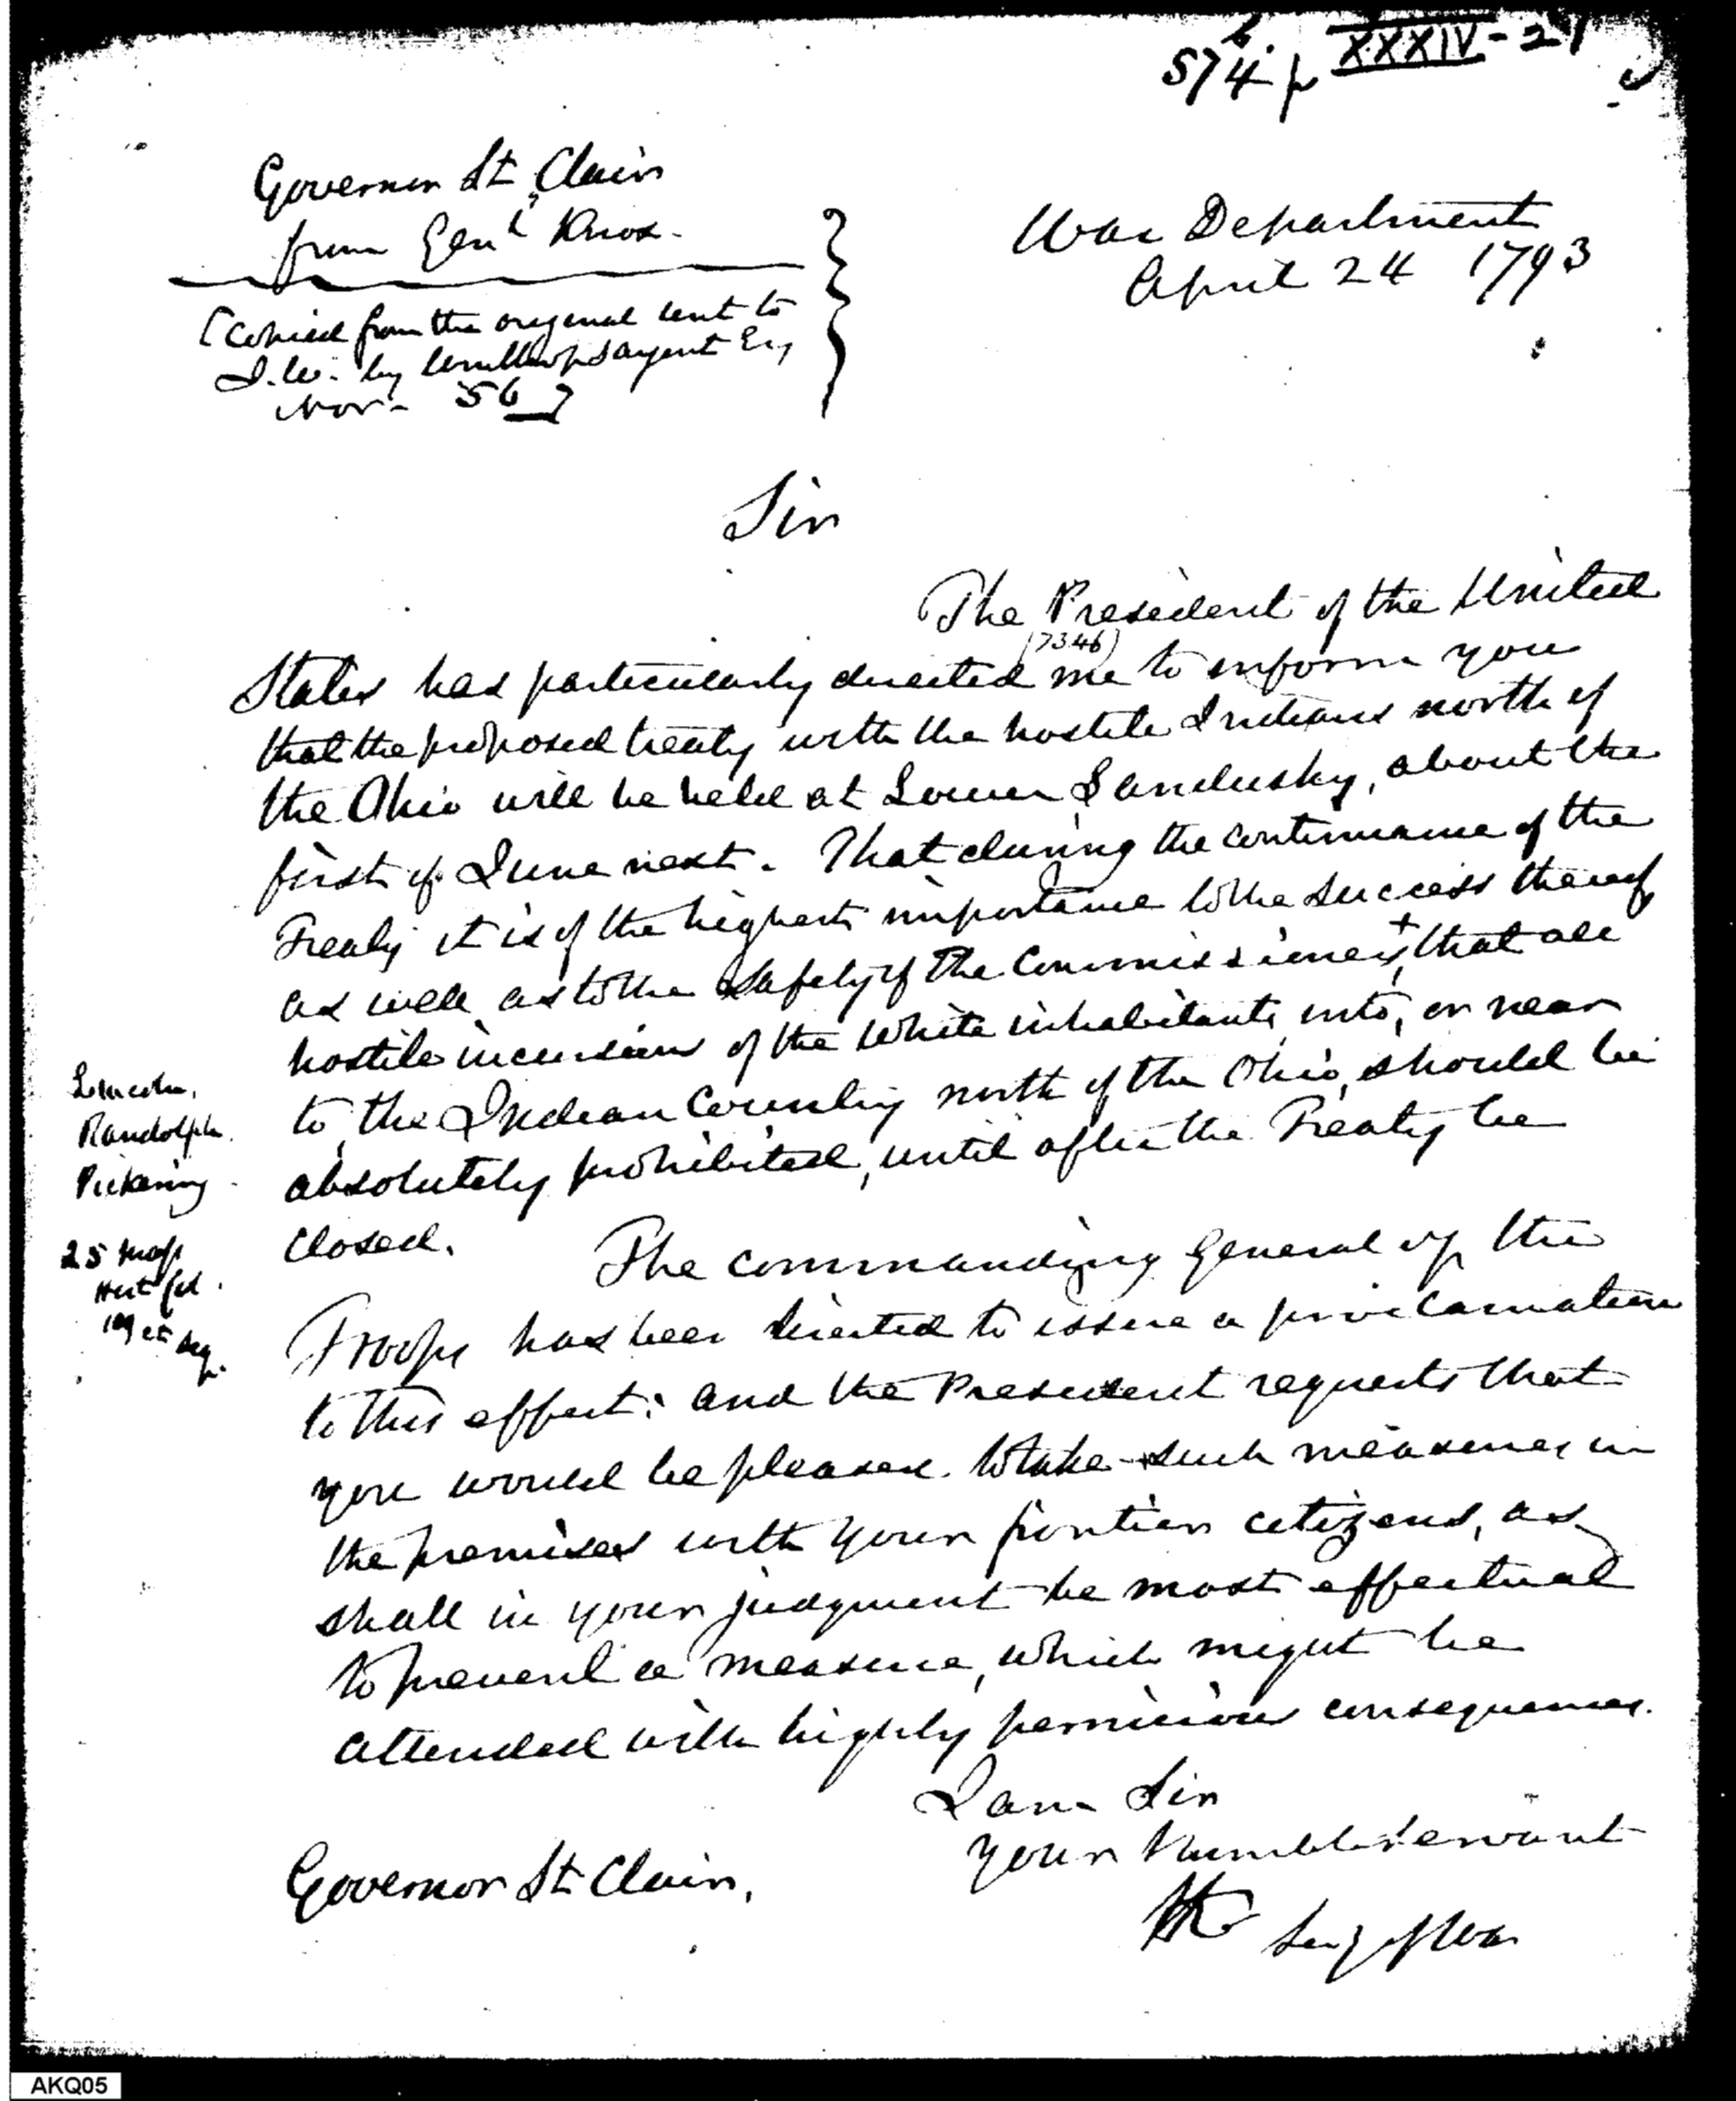 574 p XXXIV-21
Governor St. Clair
from Genl Knox.
[Copied from the original sent to
I.W. by Winthrop Sargent Esq
Nov- 56]
War Department
April 24 1793
Sir
The President of the United
(7346)
States has particularly directed me to inform you
that the proposed treaty with the hostile Indians north of
the Ohio will be held at Lower Sandusky, about the
first of June next. That during the continuance of the
Treaty it is of the highest importance to the success thereof
as well as to the safety of the Commissioners,+ that all
hostile incursions of the White inhabitants, into, or near
to, the Indian Country north of the Ohio, should be
absolutely prohibited, until after the Treaty be
closed.
Lincoln,
Randolph
Pickering
25 Mass
Hist Col.
109 et seq.
The commanding General of the
Troops has been directed to issue a proclamation
to this effect: and the President requests that
you would be pleased to take such measures in
the premises with your frontier citizens, as
shall in your judgment be most effectual
to prevent a measure, which might be
attended with highly pernicious consequences.
I am Sir
your humble servant
HK Secy of War
Governor St Clair,
AKQ05